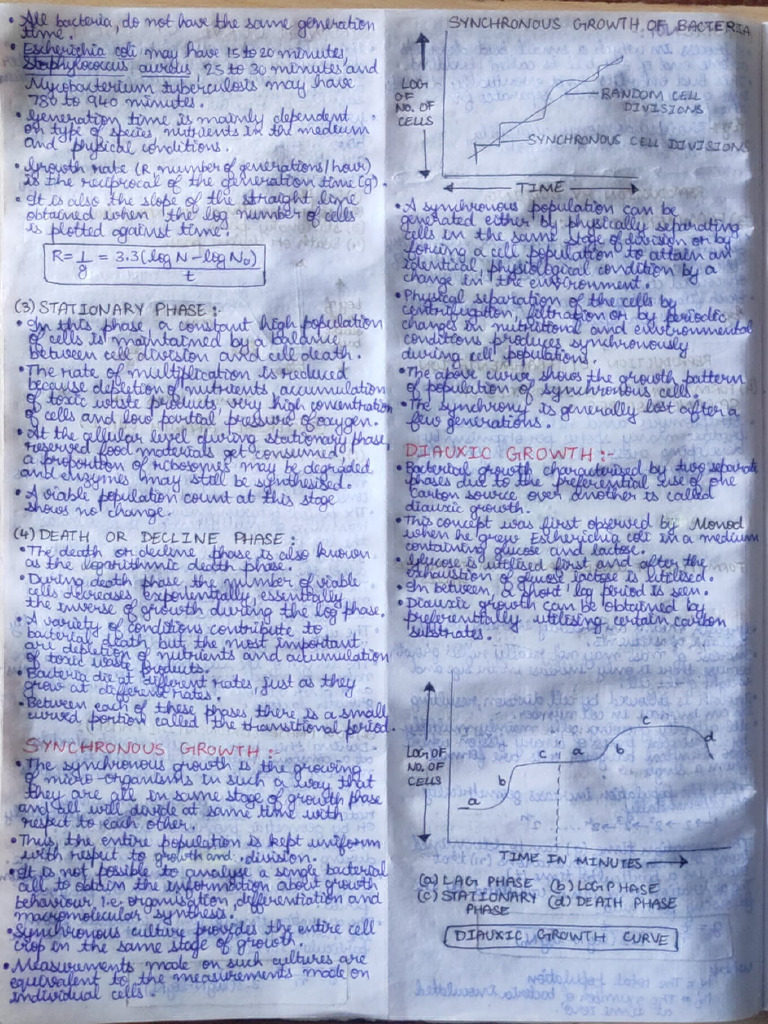 • All bacteria, do not have the same generation
time.
• Escherichia coli may have 15 to 20 minutes,
Staphylococcus aureus 25 to 30 minutes and
Mycobacterium tuberculosis may have
780 to 940 minutes.
• Generation time is mainly dependent
on type of species, nutrients in the medium
and physical conditions.
• Growth rate (R number of generations/hour)
is the reciprocal of the generation time (g).
• It is also the slope of the straight line
obtained when the log number of cells
is plotted against time.
R = 1/g = 3.3 (log N - log N₀)/t
(3) STATIONARY PHASE :-
• In this phase a constant high population
of cells is maintained by a balance
between cell division and cell death.
• The rate of multiplication is reduced
because depletion of nutrients, accumulation
of toxic waste products, very high concentration
of cells and low partial pressure of oxygen.
• At the cellular level during stationary phase,
reserved food materials get consumed,
a proportion of ribosomes may be degraded
and enzymes may still be synthesised.
• A viable population count at this stage
shows no change.
(4) DEATH OR DECLINE PHASE :
• The death or decline phase is also known
as the logarithmic death phase.
• During death phase, the number of viable
cells decreases exponentially, essentially
the inverse of growth during the log phase.
• A variety of conditions contribute to
bacterial death, but the most important
are depletion of nutrients and accumulation
of toxic waste products.
• Bacteria die at different rates, just as they
grow at different rates.
• Between each of these phases there is a small
curved portion called the transitional period.
SYNCHRONOUS GROWTH :-
• The synchronous growth is the growing
of micro-organisms in such a way that
they are all in same stage of growth phase
and all will divide at same time with
respect to each other.
• Thus, the entire population is kept uniform
with respect to growth and division.
• It is not posible to analyse a single bacterial
cell to obtain the information about growth
behaviour i.e. organisation, differentiation and
macromolecular synthesis.
• Synchronous culture provides the entire cell
crop in the same stage of growth.
• Measurements made on such cultures are
equivalent to the measurements made on
individual cells.
SYNCHRONOUS GROWTH OF BACTERIA
LOG
OF
NO. OF
CELLS
RANDOM CELL
DIVISIONS
SYNCHRONOUS CELL DIVISIONS
TIME
• A synchronous population can be
generated either by physically separating
cells in the same stage of division or by
forcing a cell population to attain an
identical physiological condition by a
change in the environment.
• Physical separation of the cells by
centrifugation, filtration or by periodic
changes in nutritional and environmental
conditions produces synchronously
during cell populations.
• The above curve shows the growth pattern
of population of synchronous cells.
• The synchrony is generally lost after a
few generations.
DIAUXIC GROWTH :-
• Bacterial growth characterised by two separate
phases due to the preferential use of one
carbon source over another is called
diauxic growth.
• This concept was first observed by Monod
when he grew Escherichia coli in a medium
containing glucose and lactose.
• Glucose is utilised first and after the
exhaustion of glucose lactose is utilised.
• In between, a short lag period is seen.
• Diauxic growth can be obtained by
preferentially utilising certain carbon
substrates.
LOG OF
NO. OF
CELLS
a b c a b c d
TIME IN MINUTES
(a) LAG PHASE (b) LOG PHASE
(c) STATIONARY (d) DEATH PHASE
PHASE
DIAUXIC GROWTH CURVE